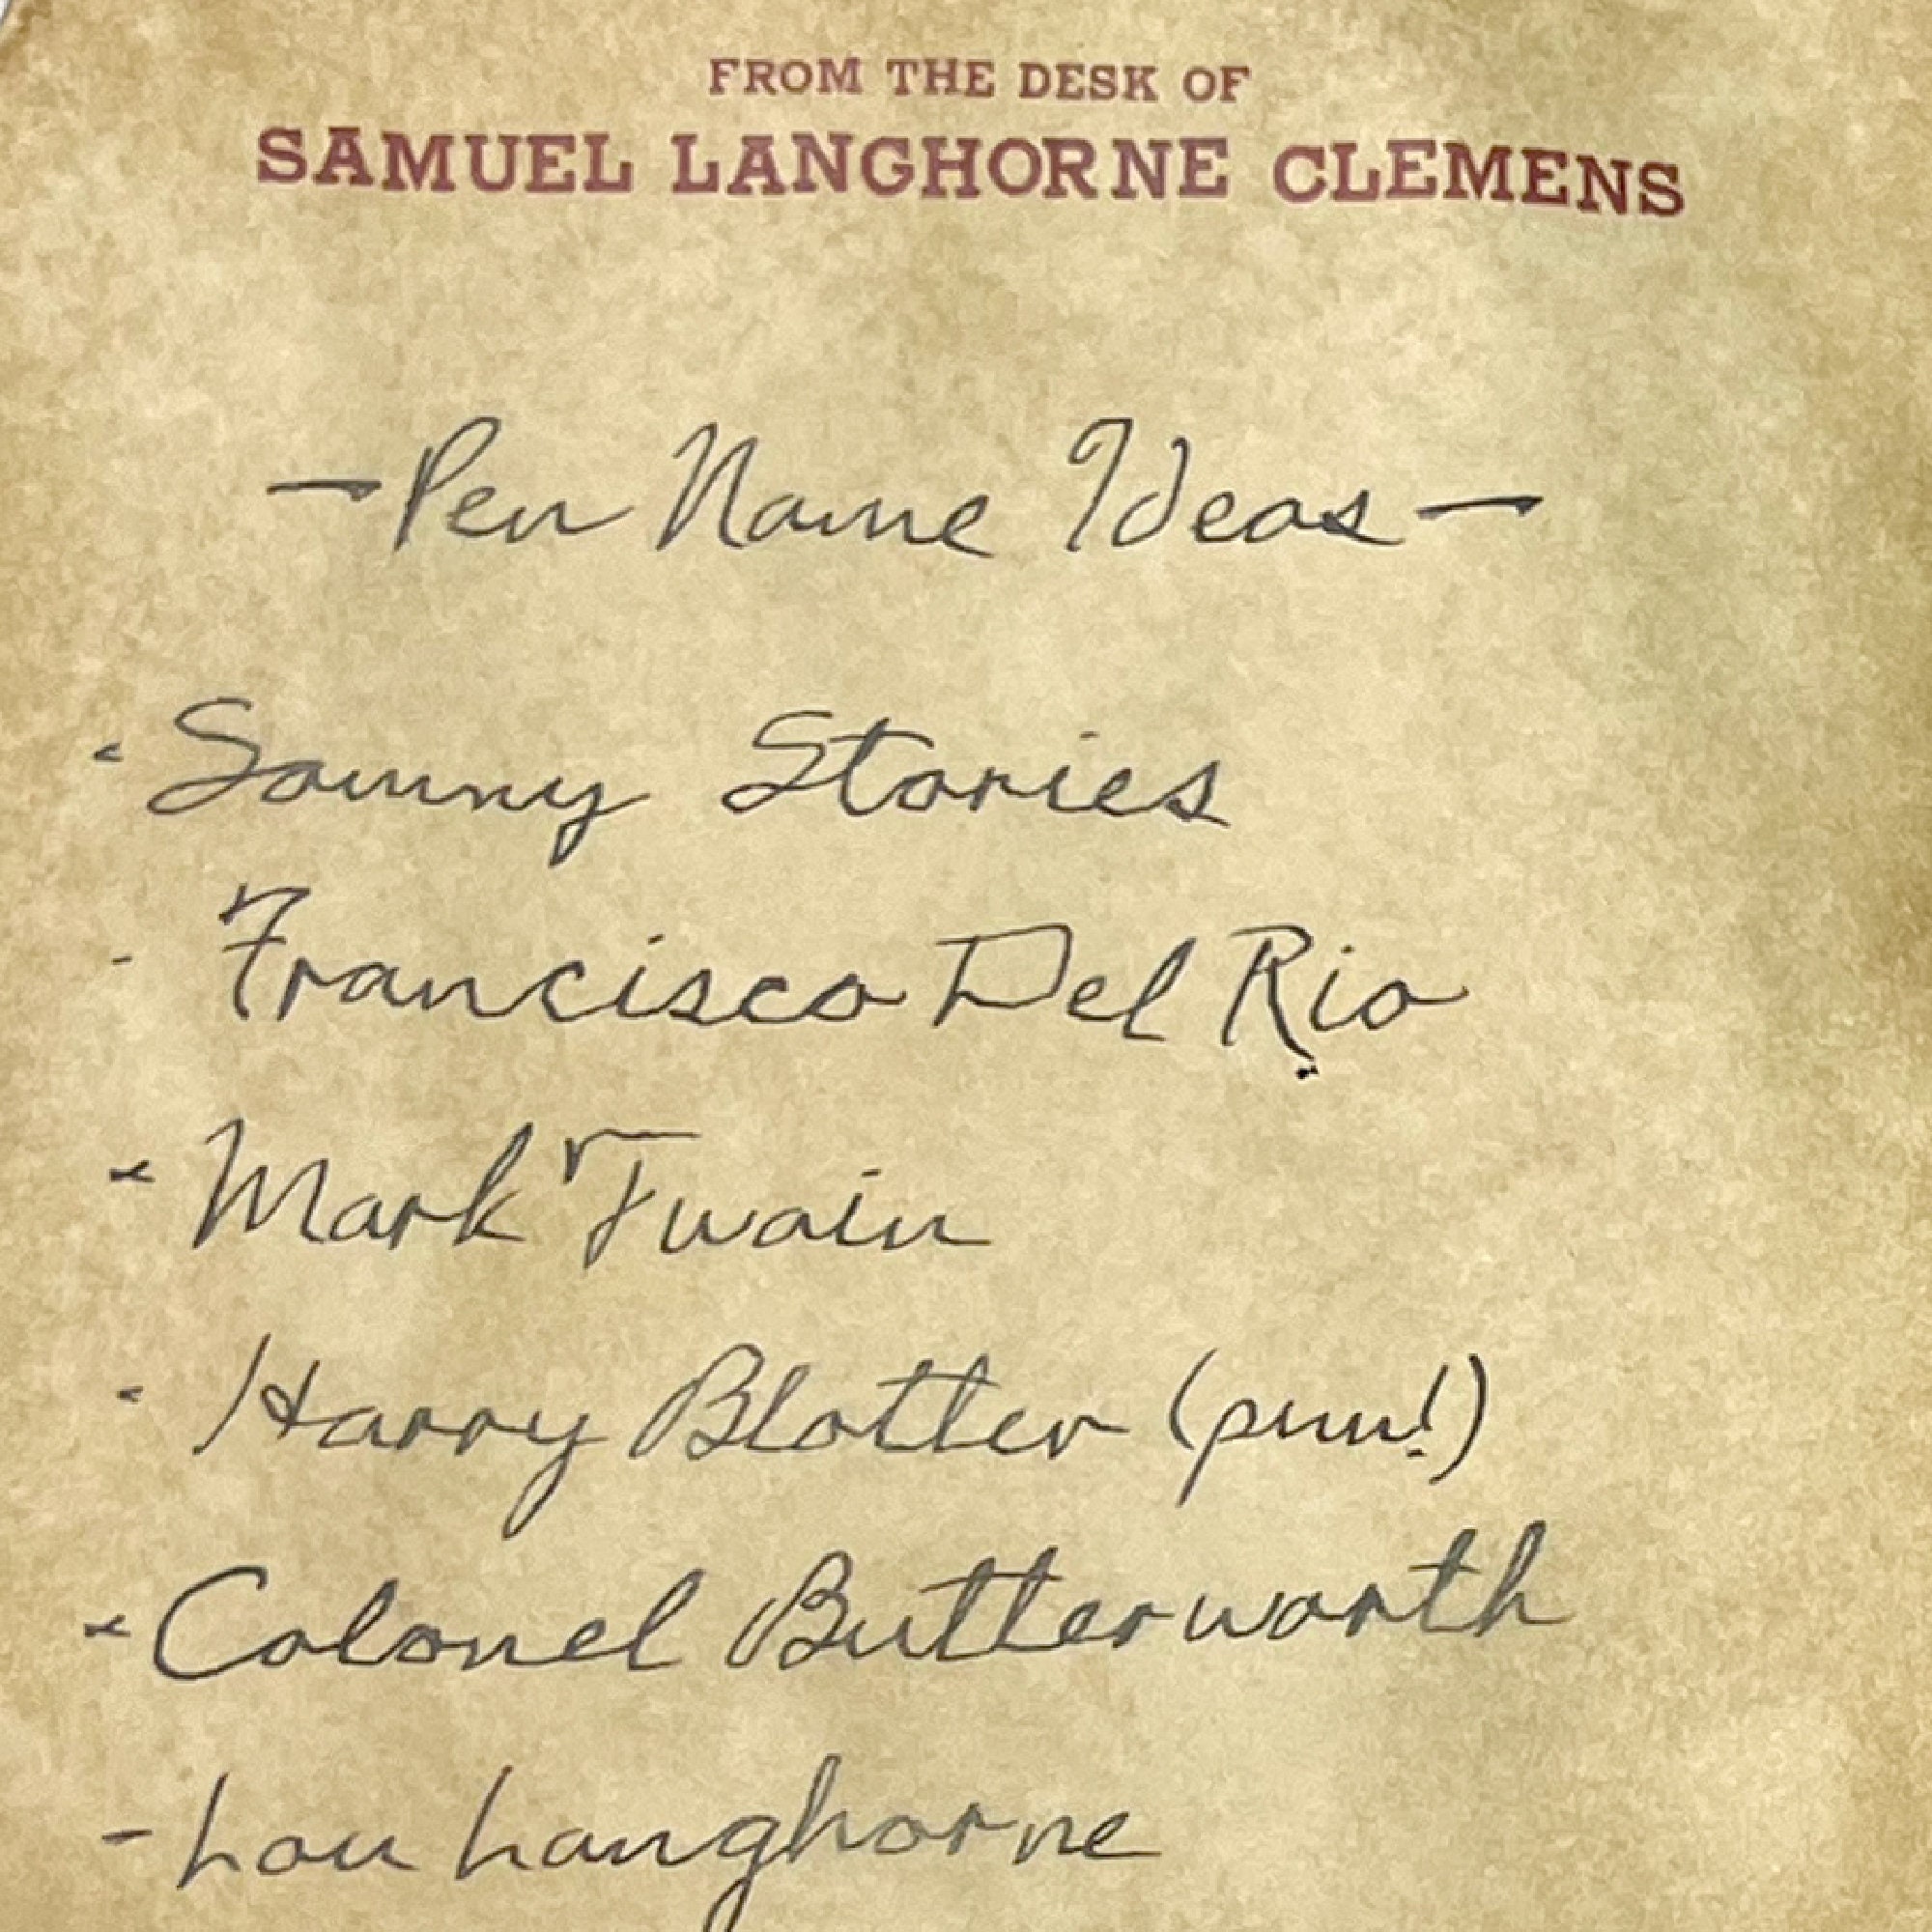 FROM THE DESK OF
SAMUEL LANGHORNE CLEMENS
- Pen Name Ideas -
- Sammy Stories
- Francisco Del Rio
- Mark Twain
- Harry Blotter (pun!)
- Colonel Butterworth
- Lou Langhorne